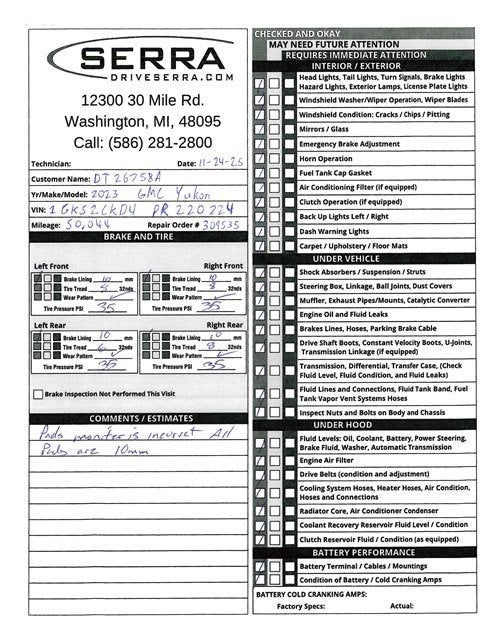 SERRA
DRIVESERRA.COM
12300 30 Mile Rd.
Washington, MI, 48095
Call: (586) 281-2800
Technician: Date: 11-24-25
Customer Name: DT 26758A
Yr/Make/Model: 2023 GMC Yukon
VIN: 1GKS2CKD4 PR220224
Mileage: 50,044 Repair Order # 309535
BRAKE AND TIRE
Left Front Right Front
Brake Lining 10 mm Brake Lining 10 mm
Tire Tread 8 32nds Tire Tread 8 32nds
Wear Pattern Wear Pattern
Tire Pressure PSI 35 Tire Pressure PSI 35
Left Rear Right Rear
Brake Lining 10 mm Brake Lining 10 mm
Tire Tread 32nds Tire Tread 8 32nds
Wear Pattern Wear Pattern
Tire Pressure PSI 35 Tire Pressure PSI 35
Brake Inspection Not Performed This Visit
COMMENTS / ESTIMATES
Pads moniter is All
Pads are 10mm
CHECKED AND OKAY
MAY NEED FUTURE ATTENTION
REQUIRES IMMEDIATE ATTENTION
INTERIOR / EXTERIOR
Head Lights, Tail Lights, Turn Signals, Brake Lights
Hazard Lights, Exterior Lamps, License Plate Lights
Windshield Washer/Wiper Operation, Wiper Blades
Windshield Condition: Cracks / Chips / Pitting
Mirrors / Glass
Emergency Brake Adjustment
Horn Operation
Fuel Tank Cap Gasket
Air Conditioning Filter (if equipped)
Clutch Operation (if equipped)
Back Up Lights Left / Right
Dash Warning Lights
Carpet / Upholstery / Floor Mats
UNDER VEHICLE
Shock Absorbers / Suspension / Struts
Steering Box, Linkage, Ball Joints, Dust Covers
Muffler, Exhaust Pipes/Mounts, Catalytic Converter
Engine Oil and Fluid Leaks
Brakes Lines, Hoses, Parking Brake Cable
Drive Shaft Boots, Constant Velocity Boots, U-Joints,
Transmission Linkage (if equipped)
Transmission, Differential, Transfer Case, (Check
Fluid Level, Fluid Condition, and Fluid Leaks)
Fluid Lines and Connections, Fluid Tank Band, Fuel
Tank Vapor Vent Systems Hoses
Inspect Nuts and Bolts on Body and Chassis
UNDER HOOD
Fluid Levels: Oil, Coolant, Battery, Power Steering,
Brake Fluid, Washer, Automatic Transmission
Engine Air Filter
Drive Belts (condition and adjustment)
Cooling System Hoses, Heater Hoses, Air Condition,
Hoses and Connections
Radiator Core, Air Conditioner Condenser
Coolant Recovery Reservoir Fluid Level / Condition
Clutch Reservoir Fluid / Condition (as equipped)
BATTERY PERFORMANCE
Battery Terminal / Cables / Mountings
Condition of Battery / Cold Cranking Amps
BATTERY COLD CRANKING AMPS:
Factory Specs: Actual: